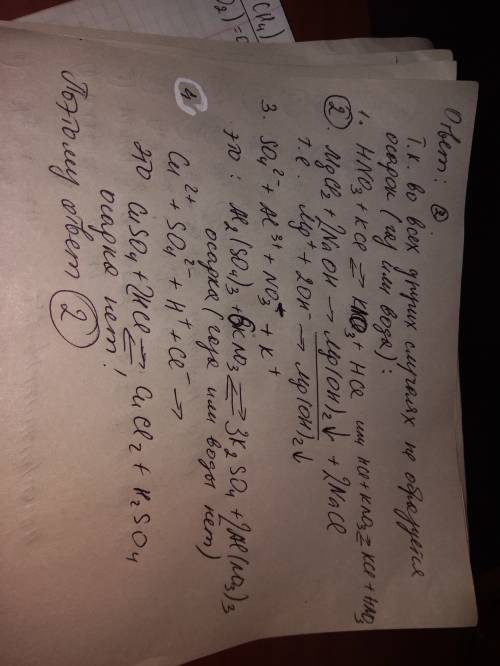 CH₄)
O₂) = c
Ответ: ②
Т.к. во всех других случаях не образуется
осадок (газ или вода):
1. HNO₃ + KCl ⇄ KNO₃ + HCl или HCl + KNO₃ ⇄ KCl + HNO₃
②. MgCl₂ + 2NaOH → Mg(OH)₂↓ + 2NaCl
т.е. Mg⁺ + 2OH⁻ → Mg(OH)₂↓
3. SO₄²⁻ + Al³⁺ + NO₃⁻ + K⁺
это: Al₂(SO₄)₃ + 6KNO₃ ⇄ 3K₂SO₄ + 2Al(NO₃)₃
осадка (газа или воды нет)
④ Cu²⁺ + SO₄²⁻ + H⁺ + Cl⁻ →
это CuSO₄ + 2HCl ⇄ CuCl₂ + H₂SO₄
осадка нет!
Поэтому ответ ②